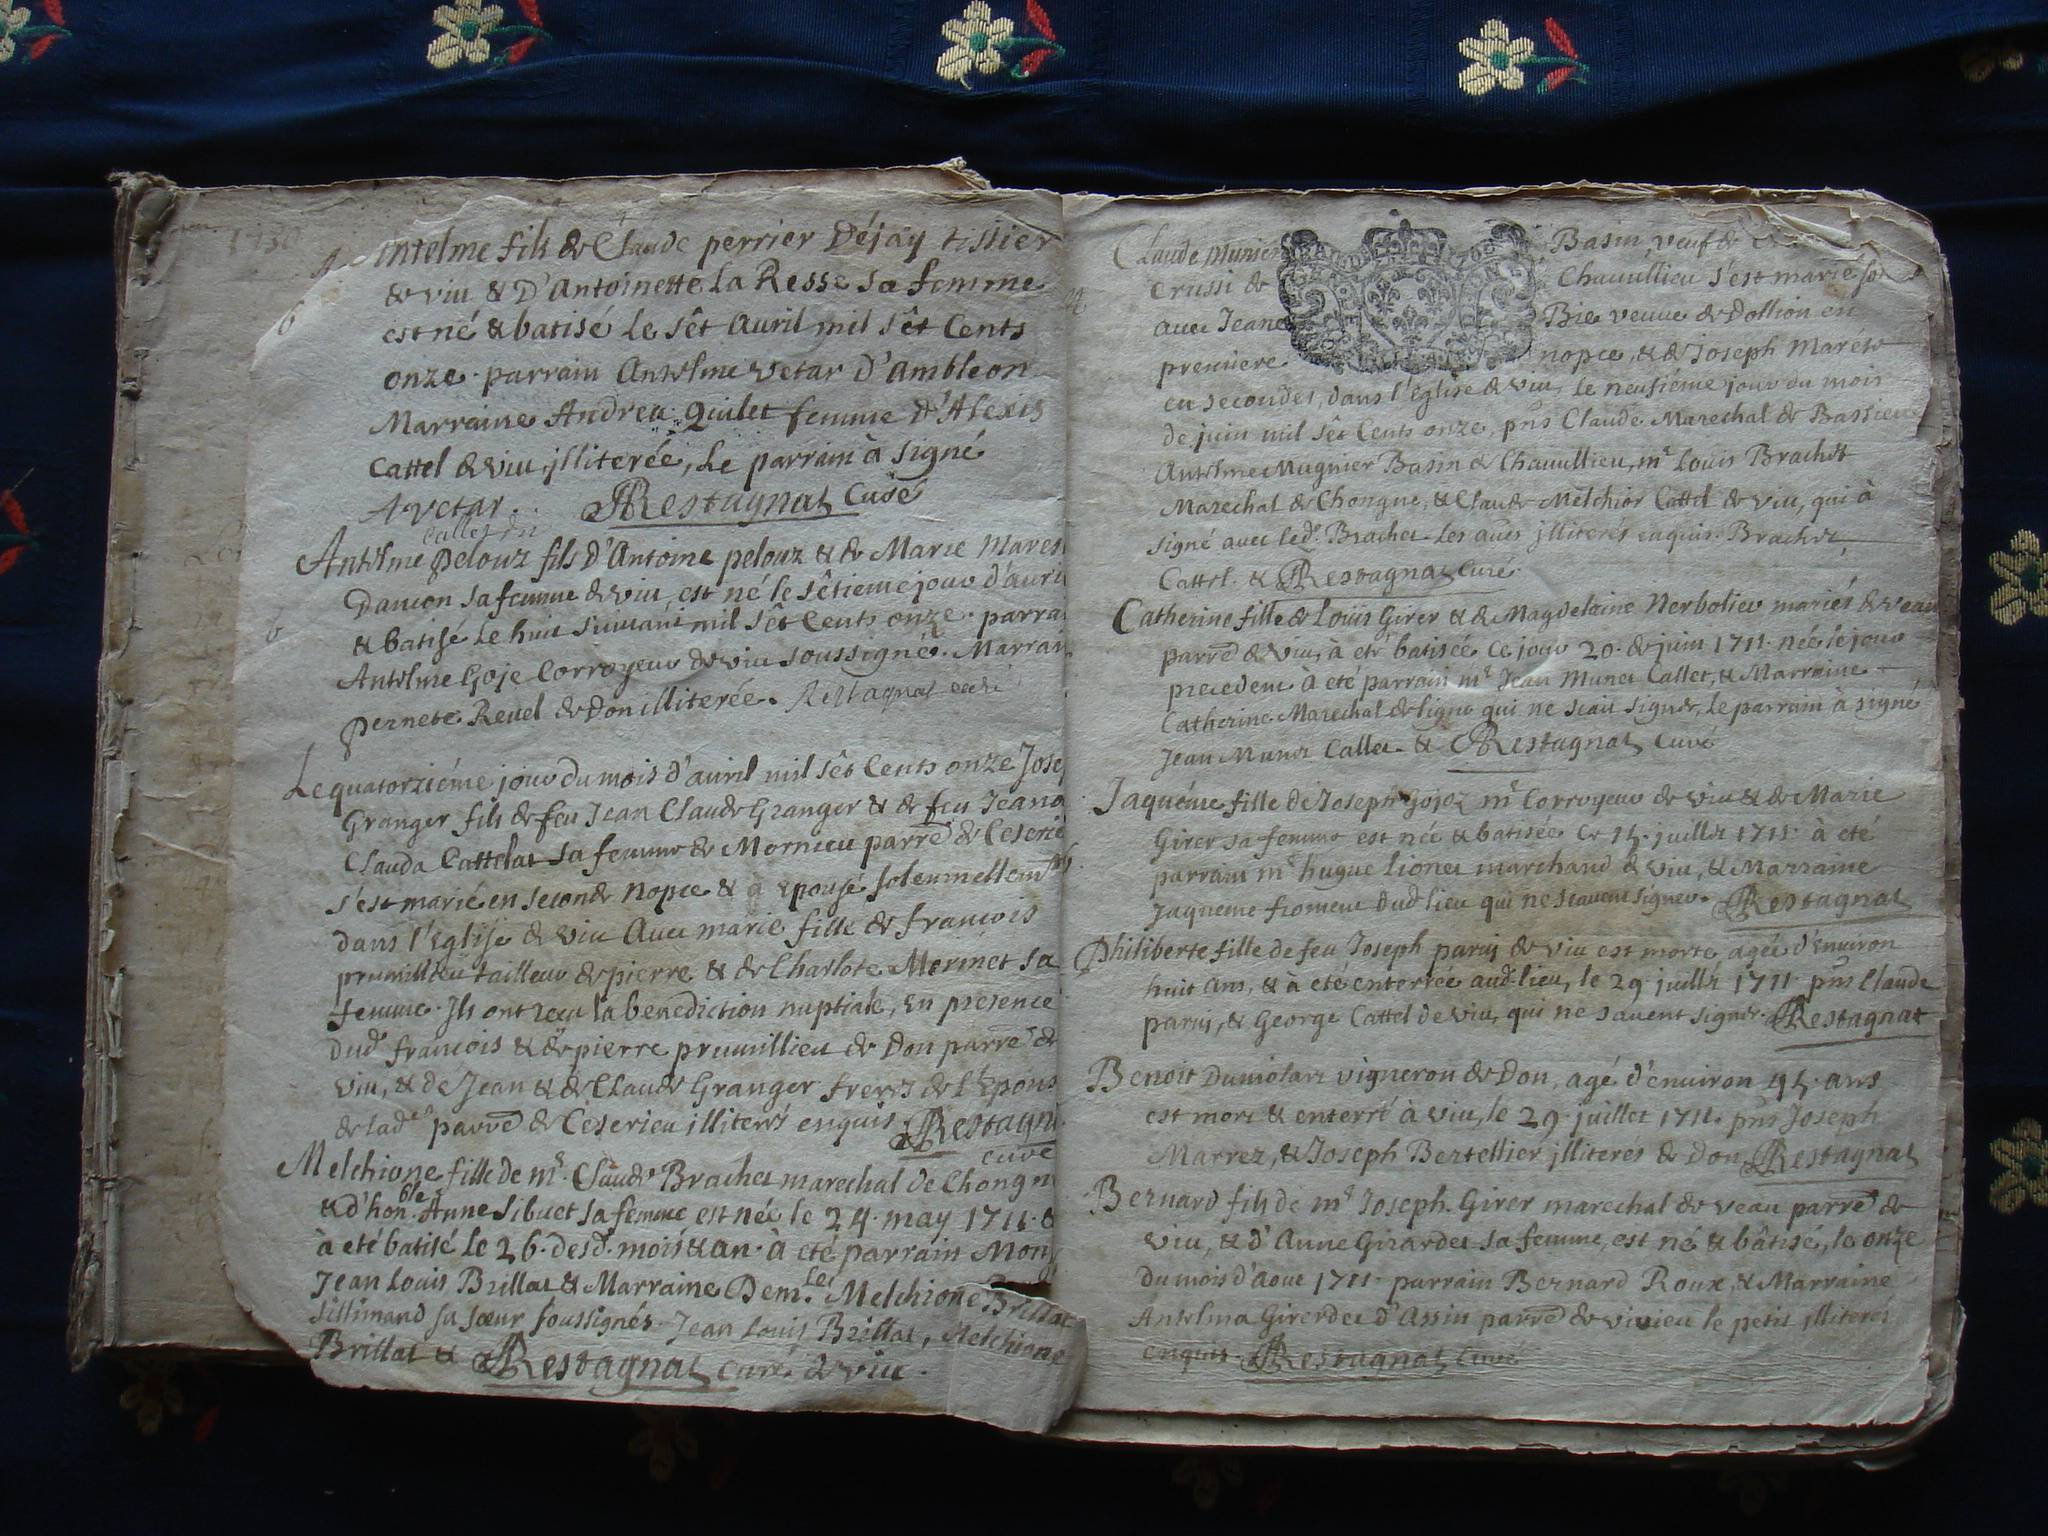 1730
Antelme fils de Claude perrier Déjay tissier
de viu & D'Antoinette La Resse sa femme
est né & batisé le sêt Auril mil sêt Cents
onze. parrain Antelme vetar D'Ambleon
Marraine Andrea Quilet femme D'Alexis
Cattel de viu, jlliterée, Le parrain à signé
A vetar. Restagnat Curé
Callet dit
Antelme pelouz fils D'Antoine pelouz & de Marie Mares
Dancon sa femme de viu, est né le sêtieme jour d'auri
& batisé le huit suiuant mil sêt Cents onze. parra
6
Antelme Goje Corroyeur de viu soussigné. Marrai
pernete Reuel de Don illiterée. Restagnat curé
Le quatorziéme jour du mois d'auril mil sêt Cents onze Jose
Granger fils de feu Jean Claude Granger & de feu Jeane
Clauda Cattelat sa femme de Mornieu parre de Ceserie
s'est marié en seconde Nopce & à Epousé solemnellem
dans l'Eglise de viu Auec marie fille de françois
prumillieu tailleur de pierre & de Charlote Mermet sa
femme. Ils ont receu la benediction nuptiale, En presence
dud françois & de pierre prumillieu de Don parre de
viu, & de Jean & de Claude Granger freres de l'Epous
de lad parre de Ceserieu illiterés enquis. Restagn
curé
Melchione fille de mr Claude Brachet marechal de Chongn
& d'honble Anne Sibuet sa femme est née le 24. may 1711. &
à eté batisé le 26. desd. mois & an. à eté parrain Mon
Jean Louis Brillat & Marraine Demle Melchione Brillat
Sillimand sa sœur soussignés. Jean Louis Brillat, Melchione
Brillat & Restagnat curé de viu.
Claude Munier Basin, veuf de
Crussi de Chauillieu s'est marié
auec Jeane Bie veuue de Dollion en
premiere nopce, & de Joseph Maréts
en secondes, dans l'Eglise de viu, le neufiéme jour du mois
de juin mil sêt Cents onze, pns Claude Marechal de Bassieu
Antelme Mugnier Basin de Chauillieu, mr Louis Brachet
Marechal de Chongne, & Claude Melchior Cattel de viu, qui à
signé auec led. Brachet. Les aues jlliterés enquis. Brachet,
Cattel. & Restagnat curé.
Catherine fille de Louis Girer & de Magdeleine Nerbolier mariés de veau
parre de viu, à eté batisée ce jour 20. de juin 1711. née le jour
precedent à eté parrain mr Jean Munet Callet, & Marraine
Catherine Marechal de ligne qui ne scait signer, Le parrain à signé
Jean Munet Callet. & Restagnat Curé
Jaquéme fille de Joseph Gojoz mr Corroyeur de viu & de Marie
Girer sa femme est née & batisée ce 15. juillet 1711. à eté
parrain mr hugue Lionet marchand de viu, & Marraine
Jaqueme fromeu dud lieu qui ne scauent signer. Restagnat
Philiberte fille de feu Joseph parui de viu est morte agée d'Enuiron
huit ans, & à eté enterrée aud. lieu, le 29 juillet 1711. pns Claude
parui, & George Cattel de viu, qui ne sauent signer. Restagnat
Benoit Dumolarz vigneron de Don, agé d'enuiron 45. ans
est mort & enterré à viu, le 29. juillet 1711. pns Joseph
Marrez, & Joseph Bertellier jlliterés de Don, Restagnat
Bernard fils de mr Joseph Girer marechal de veau parre de
viu, & d'Anne Girardet sa femme, est né & bâtisé, le onze
du mois d'Aout 1711. parrain Bernard Roux, & Marraine
Antelma Girerdet d'Assin parre de vivieu le petit illiterés
enquis. Restagnat Curé